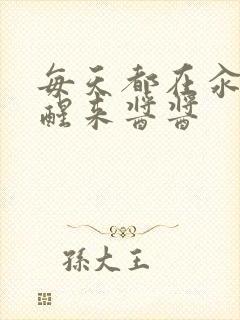 每天都在汆
醒来酱酱
孫大王